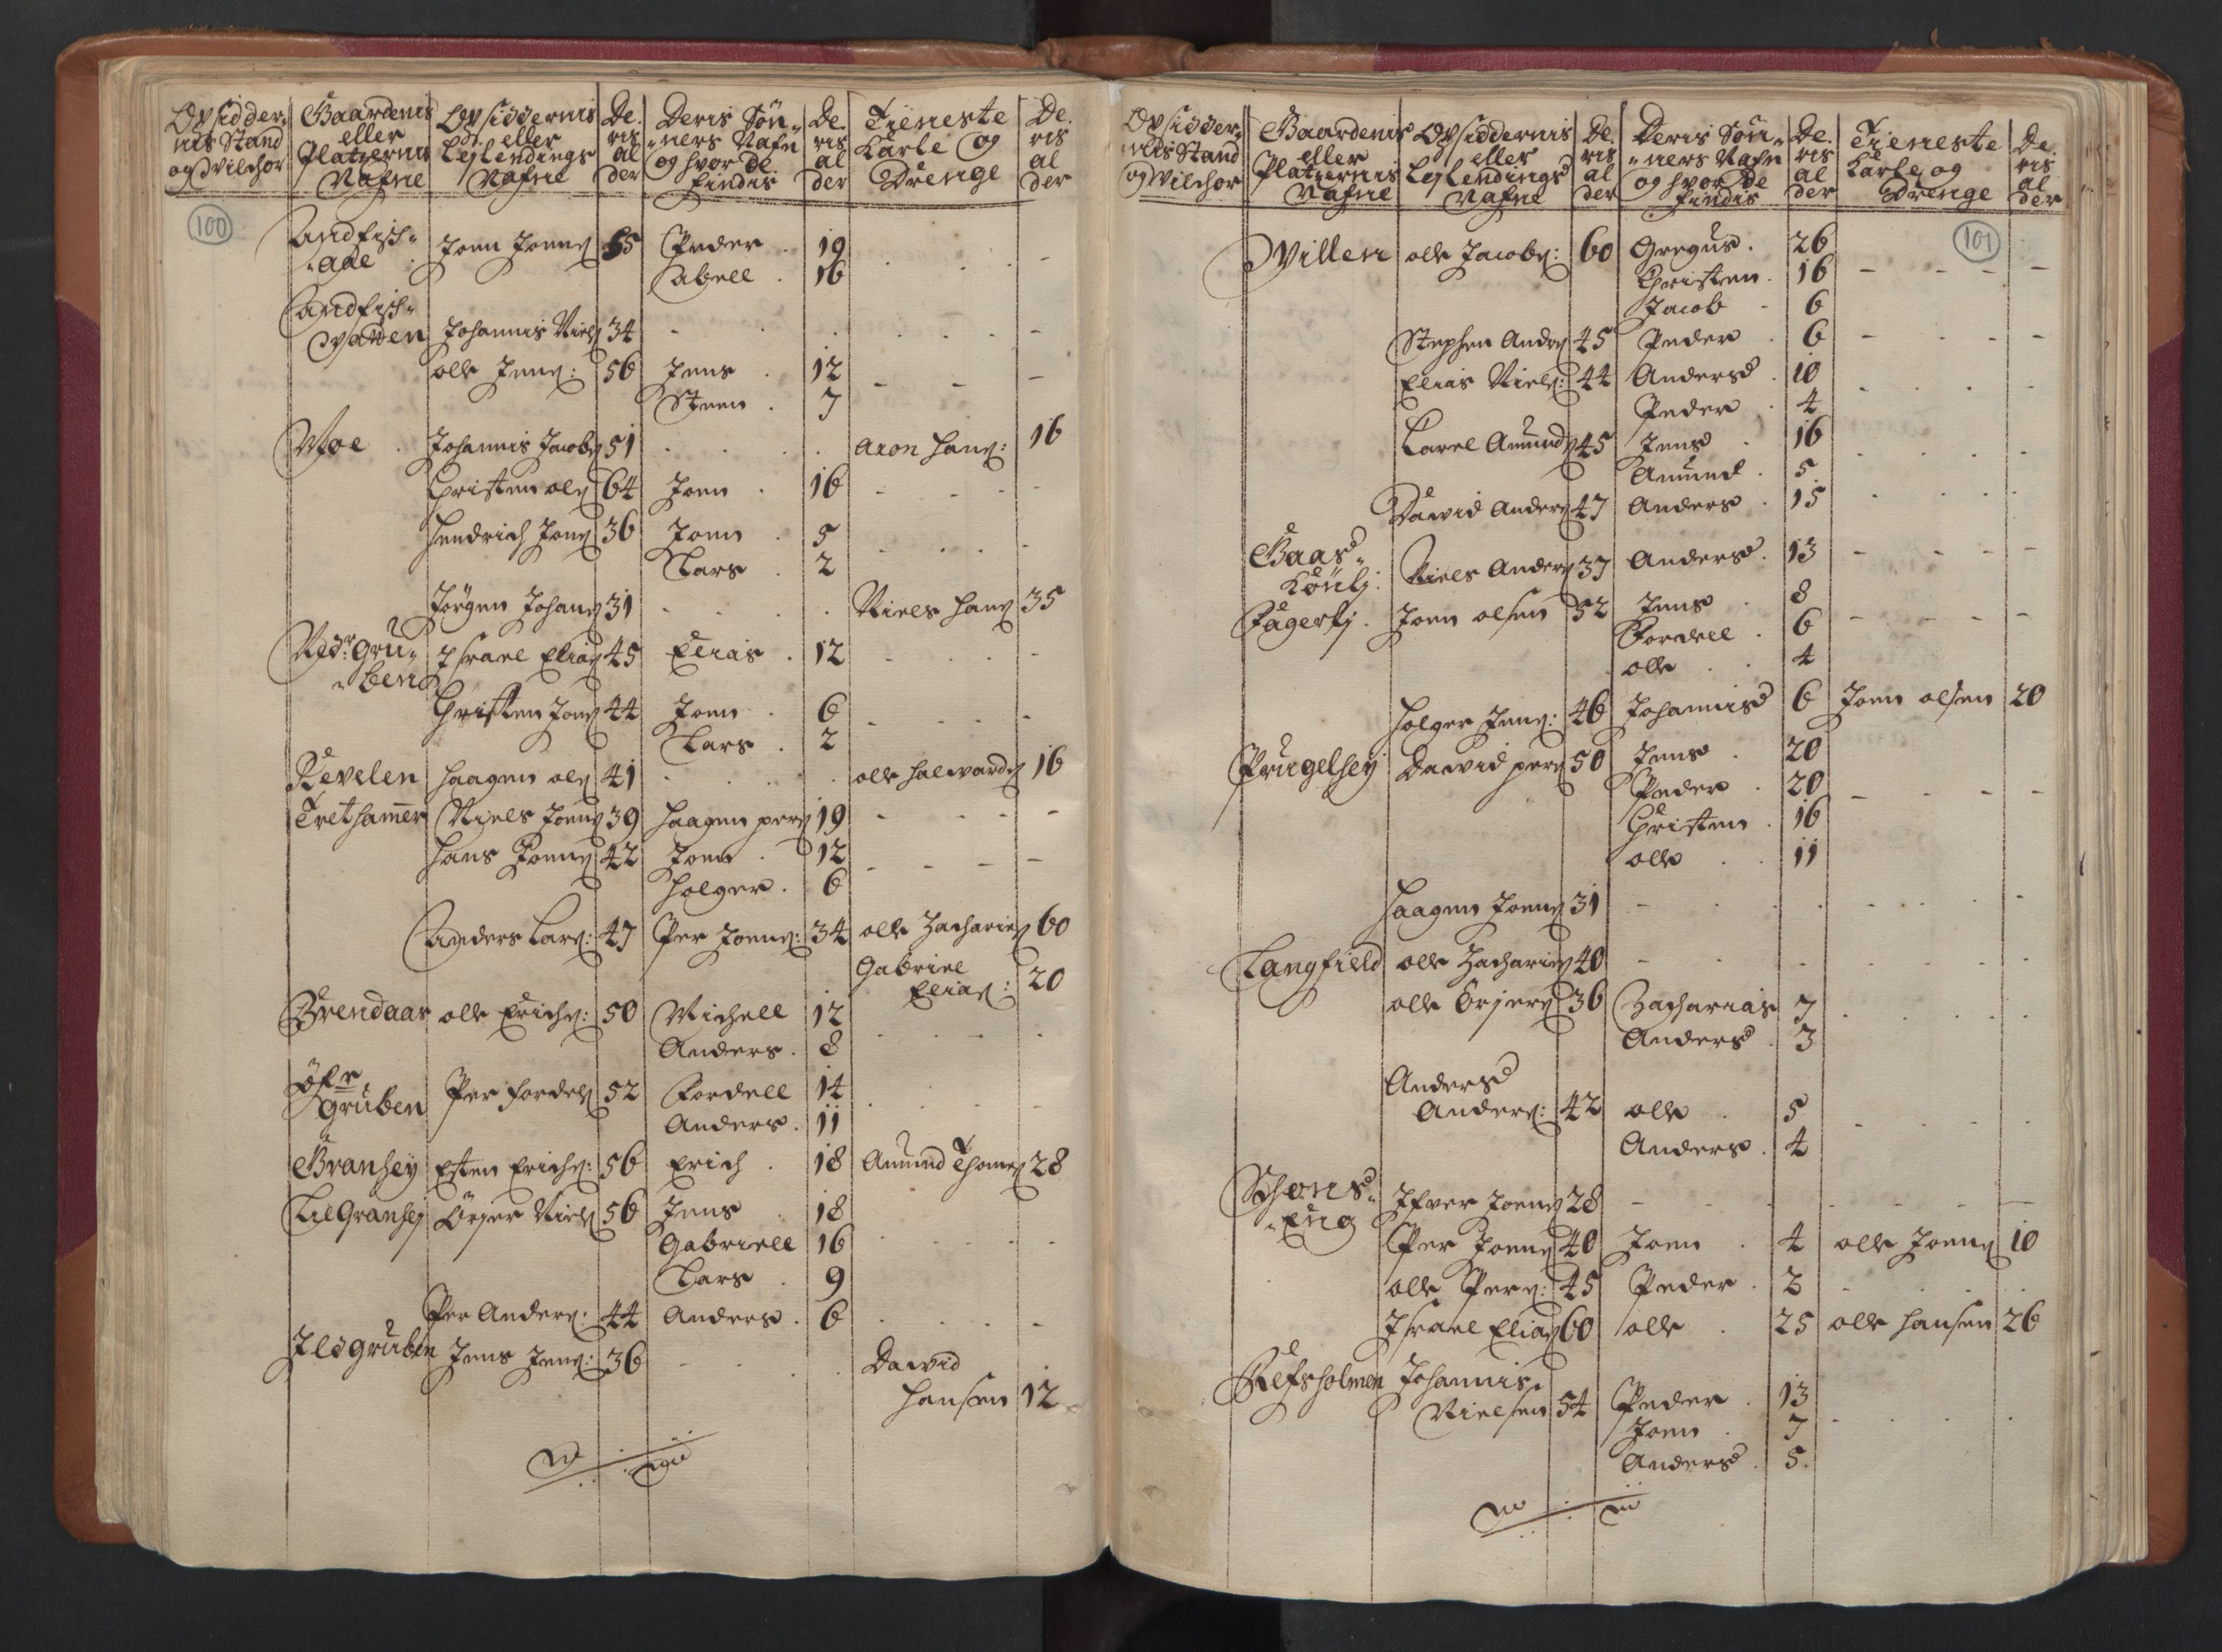 Opsidder- nis Stand og Vilchor | Gaardenis eller Platzernis Nafne | Opsiddernis eller Lejlendings Nafne | De- ris al der | Deris Søn- ners Nafn og hvor de findis | De- ris al der | Tieneste Karle og Drenge | De- ris al der
100
Andfisk- aae | Joen Joens: | 65 | Peder | 19
Abell | 16
Andfisk- Vatten | Johannis Niels: | 34
olle Jens: | 56 | Jens | 12
Steen | 7
Moe | Johannis Jacobs: | 51 | Aron Hans: | 16
Christen ols: | 64 | Joen | 16
Hendrich Jons: | 36 | Joen | 5
Lars | 2
Jørgen Johans: | 31 | Niels Hans: | 35
Nedr: Gru- ben | Israel Elias: | 45 | Elias | 12
Christen Jons: | 44 | Joen | 6
Lars | 2
Revelen | Haagen ols: | 41 | olle Halvards: | 16
Trethamer | Niels Joens: | 39 | Haagen pers: | 19
Hans Joens: | 42 | Joen | 12
Holger | 6
Anders Lars: | 47 | Per Joens: | 34 | olle Zacharias: | 60
Gabriel
Elias: | 20
Brendaas | olle Erichs: | 50 | Michell | 12
Anders | 8
Øfr Gruben | Per Fordels: | 52 | Fordell | 14
Anders | 11
Granhey | Esten Erichs: | 56 | Erich | 18 | Amund Thomes: | 28
Lil Granhej | Ørjer Niels: | 56 | Jens | 18
Gabriell | 16
Lars | 9
Per Anders: | 44 | Anders | 6
Ildgruben | Jens Jens: | 36 | David
Hansen | 12
Opsidder- nis Stand og Vilchor | Gaardenis eller Platzernis Nafne | Opsiddernis eller Lejlendings Nafne | De- ris al der | Deris Søn- ners Nafn og hvor de findis | De- ris al der | Tieneste Karle og Drenge | De- ris al der
101
Villen | olle Jacobs: | 60 | Gregus | 26
Christen | 16
Jacob | 6
Stephen Anders: | 45 | Peder | 6
Elias Niels: | 44 | Anders | 10
Peder | 4
Carel Amunds: | 45 | Jens | 16
Amund | 5
David Anders: | 47 | Anders | 15
Gaas- | Niels Anders: | 37 | Anders | 13
Fagerlj | Joen olsen | 52 | Jens | 8
Fordell | 6
olle | 4
Holger Jens: | 46 | Johannis | 6 | Joen olsen | 20
Prugelhey | David pers: | 50 | Jens | 20
Peder | 20
Christen | 16
olle | 11
Haagen Joens: | 31
Langfield | olle Zacharias: | 40
olle Ørjers: | 36 | Zacharias | 7
Anders | 3
Anders
Anders: | 42 | olle | 5
Anders | 4
Schons- Eng | Ifver Joens: | 28
Per Joens: | 40 | Joen | 4 | olle Joens: | 10
olle Pers: | 45 | Peder | 2
Israel Elias: | 60 | olle | 25 | olle Hansen | 26
Refsholmen | Johannis
Nielsen | 54 | Peder | 13
Joen | 7
Anders | 5